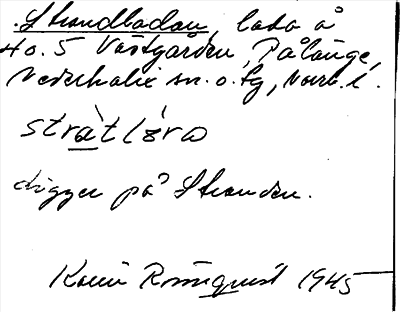 Strandladan, lada å
4 o. 5 Västgården, Pålänge,
Nederkalix sn. o. tg, Norrb. l.
ligger på Stranden.
Rönnquist 1945